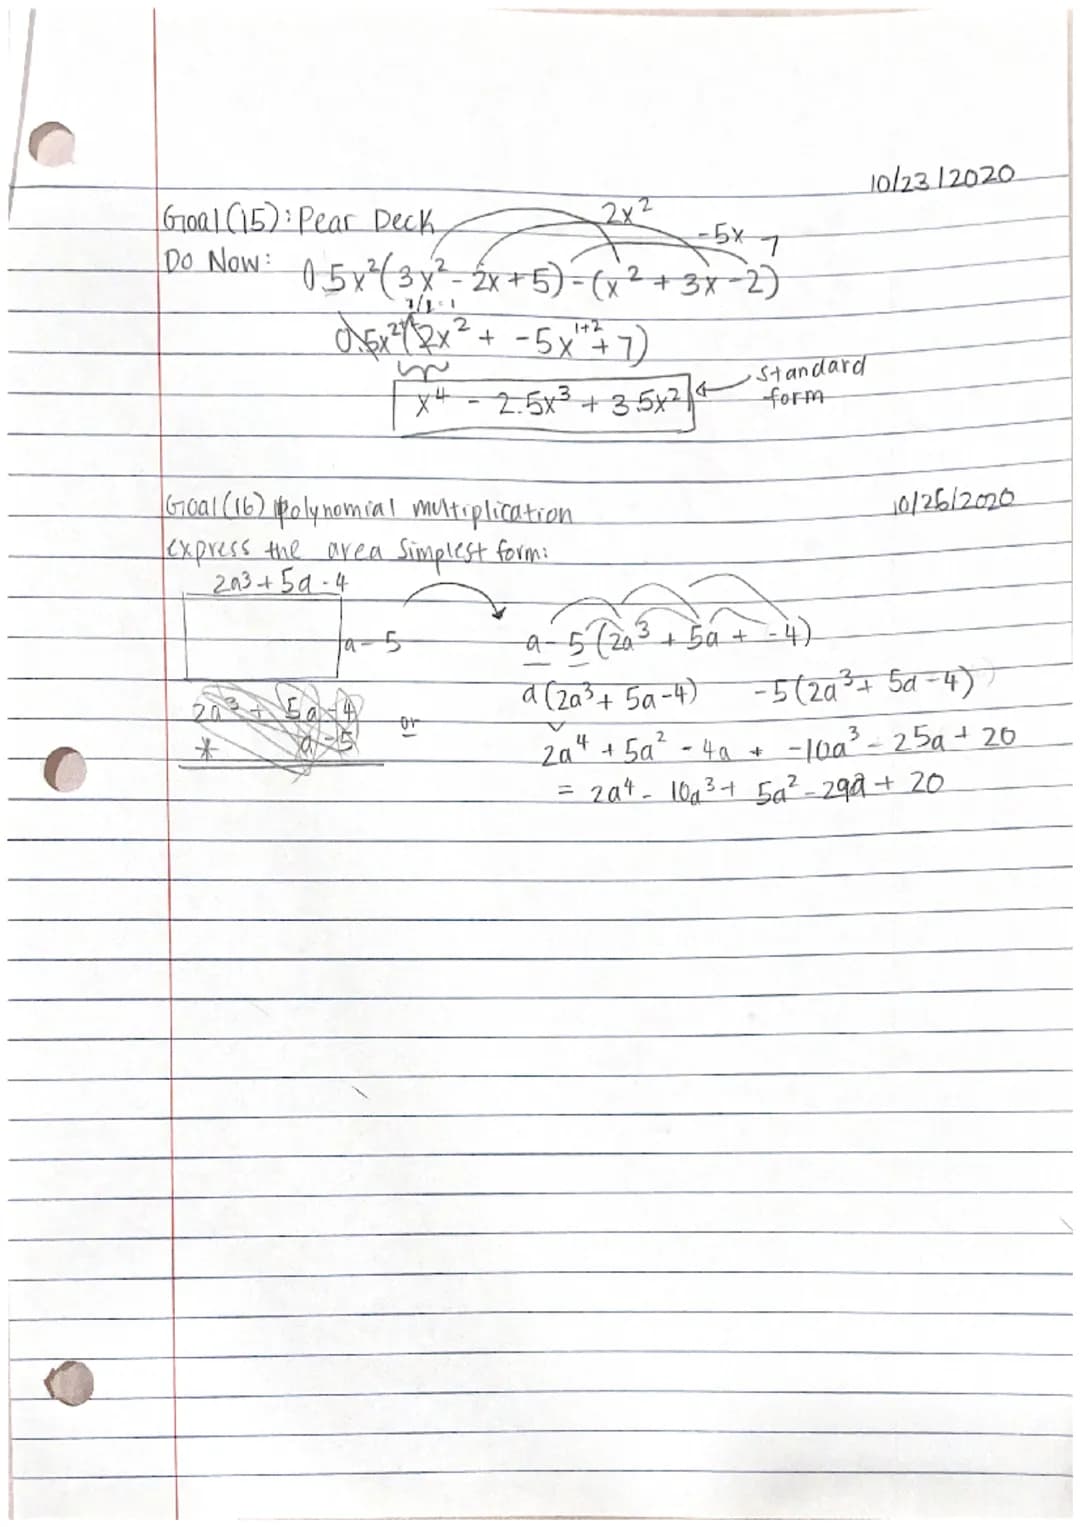 10/23/2020
Goal (15): Pear Deck
2x²
-5x 7
Do Now: 0.5x²(3x² - 2x + 5) - (x² + 3x - 2)
0.5x²(2x² + -5x¹⁺² + 7)
x⁴ - 2.5x³ + 3.5x² ← standard form
Goal (16) polynomial multiplication 10/26/2020
Express the area simplest form:
2a³ + 5a - 4
a - 5
a - 5 (2a³ + 5a + -4)
a (2a³ + 5a - 4) -5 (2a³ + 5a - 4)
2a³ + 5a - 4
* a - 5
or
2a⁴ + 5a² - 4a + -10a³ - 25a + 20
= 2a⁴ - 10a³ + 5a² - 29a + 20